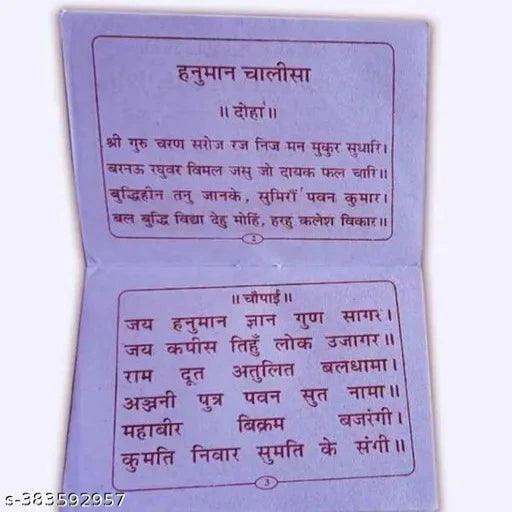 हनुमान चालीसा
॥ दोहा ॥
श्री गुरु चरण सरोज रज निज मन मुकुर सुधारि।
बरनऊ रघुवर विमल जसु जो दायक फल चारि॥
बुद्धिहीन तनु जानके, सुमिरौं पवन कुमार।
बल बुद्धि विद्या देहु मोहिं, हरहु कलेश विकार॥
2
॥ चौपाई ॥
जय हनुमान ज्ञान गुण सागर।
जय कपीस तिहुँ लोक उजागर॥
राम दूत अतुलित बलधामा।
अञ्जनी पुत्र पवन सुत नामा॥
महाबीर बिक्रम बजरंगी।
कुमति निवार सुमति के संगी॥
3
s-383592957